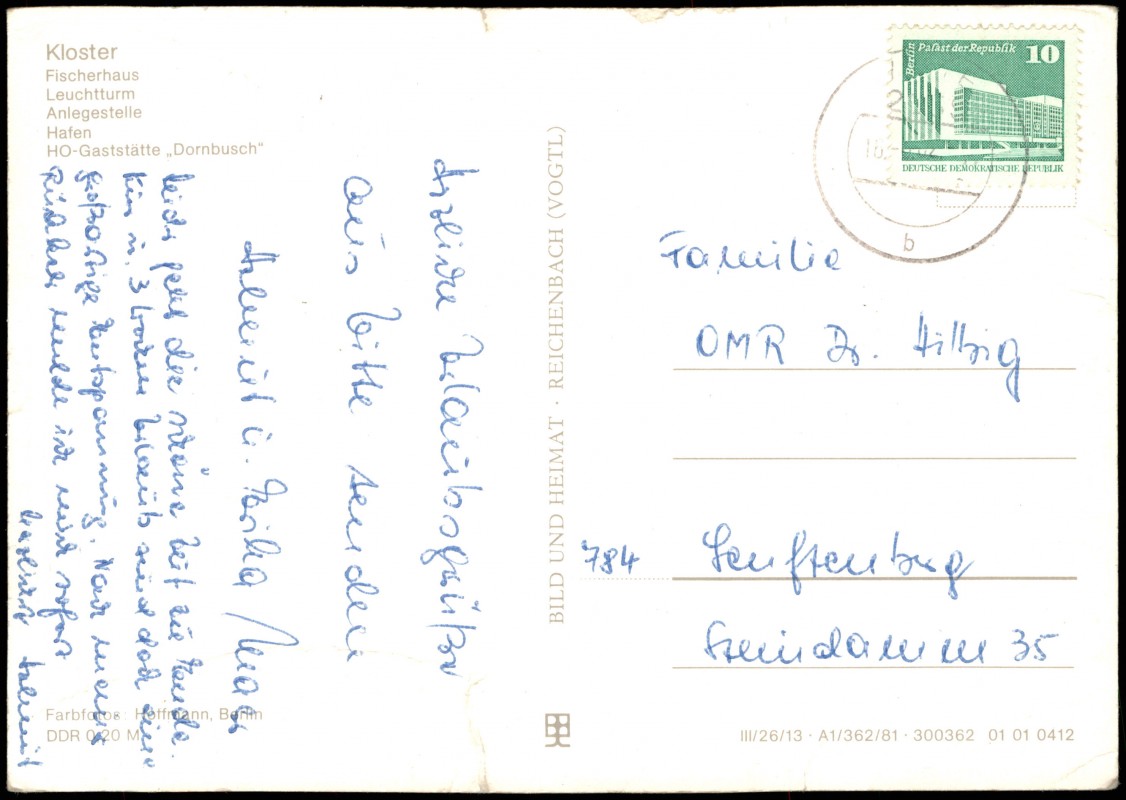 Kloster
Fischerhaus
Leuchtturm
Anlegestelle
Hafen
HO-Gaststätte „Dornbusch"
Herzliche Urlaubsgrüße
aus Vitte senden
Helmut u.
Leider geht die schöne Zeit zu Ende.
3 Wochen Urlaub sind doch eine
großartige Entspannung. Nach meiner
Rückkehr melde ich mich sofort
Helmut
Farbfotos: Hoffmann, Berlin
DDR 0,20 M
BILD UND HEIMAT · REICHENBACH (VOGTL)
Berlin Palast der Republik 10
DEUTSCHE DEMOKRATISCHE REPUBLIK
b
Familie
OMR Dr. Hittzig
784 Senftenberg
Steindamm 35
III/26/13 · A1/362/81 · 300362 01 01 0412